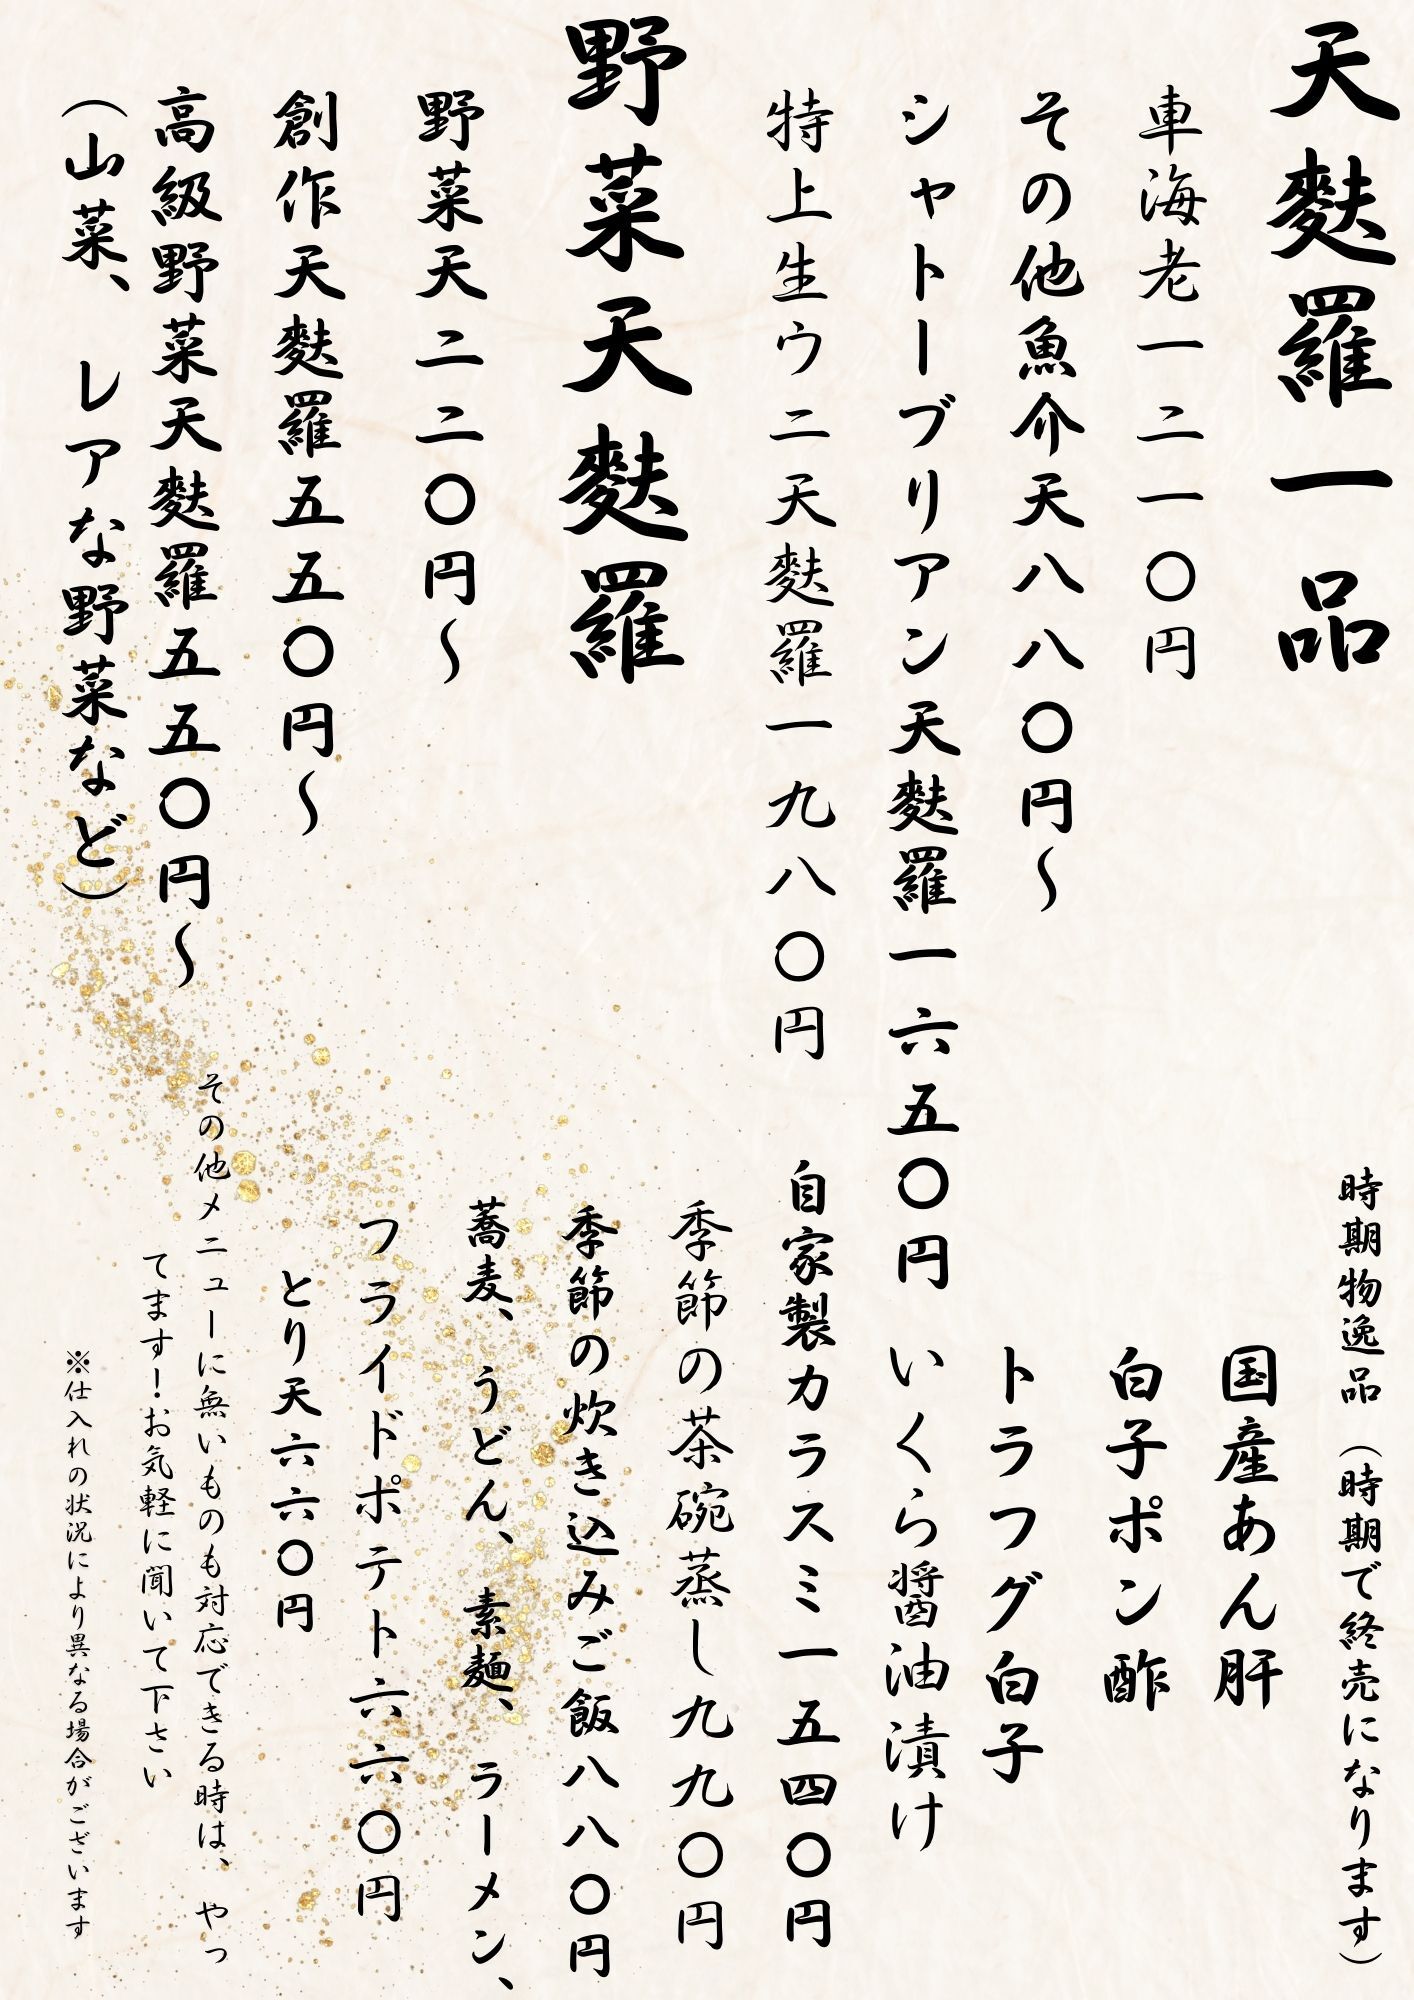 天麩羅一品
車海老一二一〇円
その他魚介天八八〇円〜
シャトーブリアン天麩羅一六五〇円
特上生ウニ天麩羅一九八〇円
野菜天麩羅
野菜天二二〇円〜
創作天麩羅五五〇円〜
高級野菜天麩羅五五〇円〜
（山菜、レアな野菜など）
時期物逸品（時期で終売になります）
国産あん肝
白子ポン酢
トラフグ白子
いくら醤油漬け
自家製カラスミ一五四〇円
季節の茶碗蒸し九九〇円
季節の炊き込みご飯八八〇円
蕎麦、うどん、素麺、ラーメン、
フライドポテト六六〇円
とり天六六〇円
その他メニューに無いものも対応できる時は、やっ
てます！お気軽に聞いて下さい
※仕入れの状況により異なる場合がございます